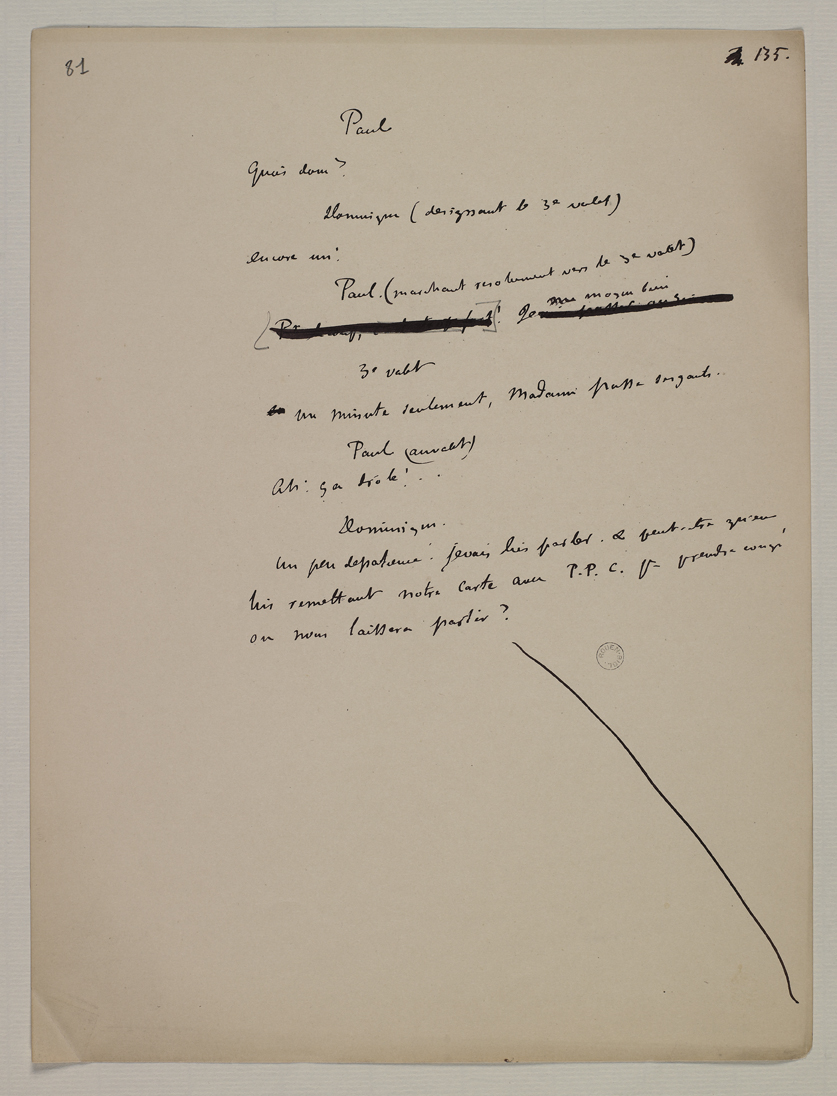 81
135.
Paul
Quoi donc?
Dominique (designant le 3e valet)
encore un!
Paul. (marchant resolument vers le 3e valet)
! Je
me moque bien
3e valet
un minute seulement, Madame passe ses gants..
Paul (au valet)
Ah! ça drôle! . .
Dominique.
Un peu depaTenné! je vais lui parler. & peut-etre qu'en
lui remettant notre carte avec P.P.C. pr prendre congé
on nous laissera partir?